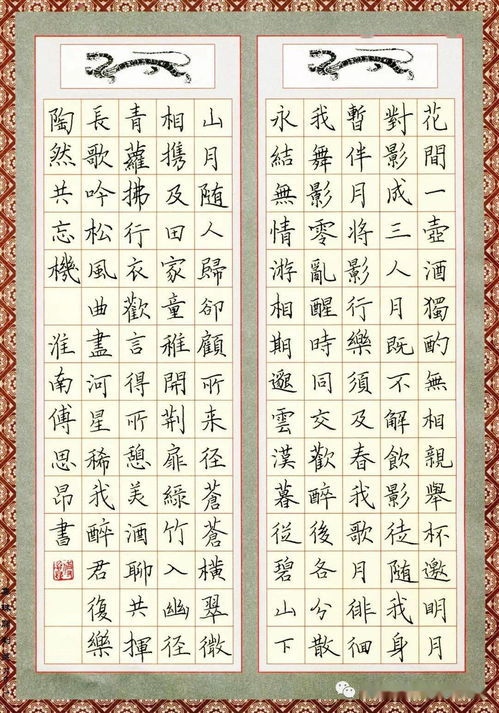 花間一壺酒獨酌無相親舉杯邀明月
對影成三人月既不解飲影徒随我身
暫伴月將影行樂須及春我歌月徘徊
我舞影零亂醒時同交歡醉後各分散
永結無情游相期邈雲漢暮從碧山下
山月随人歸卻顧所来径蒼蒼橫翠微
相携及田家童稚開荆扉綠竹入幽径
青蘿拂行衣歡言得所憩美酒聊共揮
長歌吟松風曲盡河星稀我醉君復樂
陶然共忘機 淮南傅思昂書